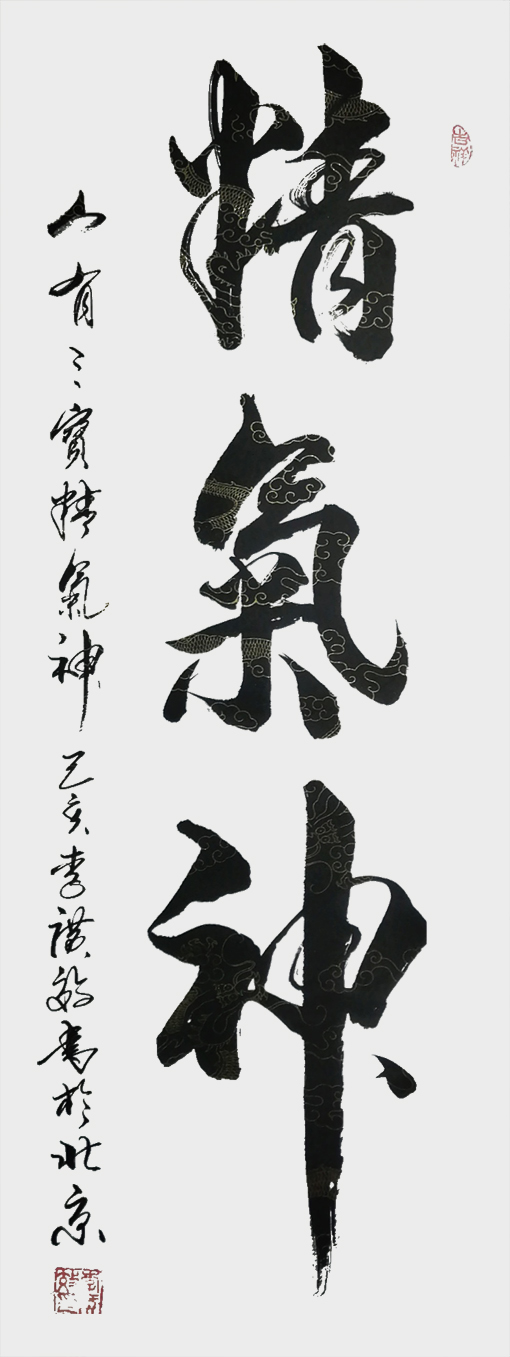 吉祥
精氣神
人有三寶精氣神 己亥李書於北京